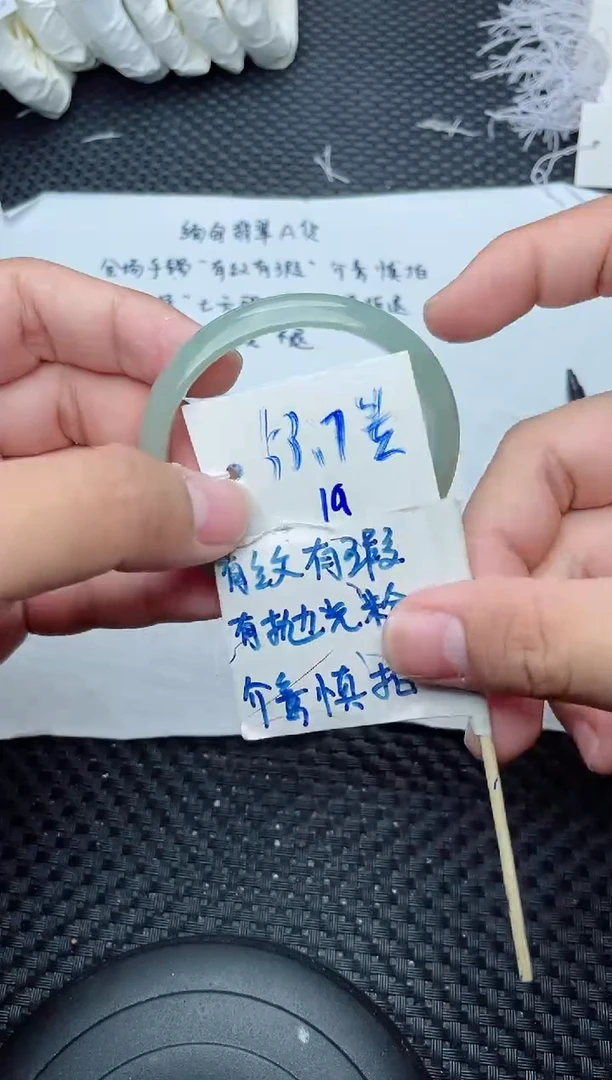 缅甸翡翠A货
全场手镯"有纹有瑕"介意慎拍
七
退
53.7姜
19
有纹有瑕
有抛光粉
介意慎拍